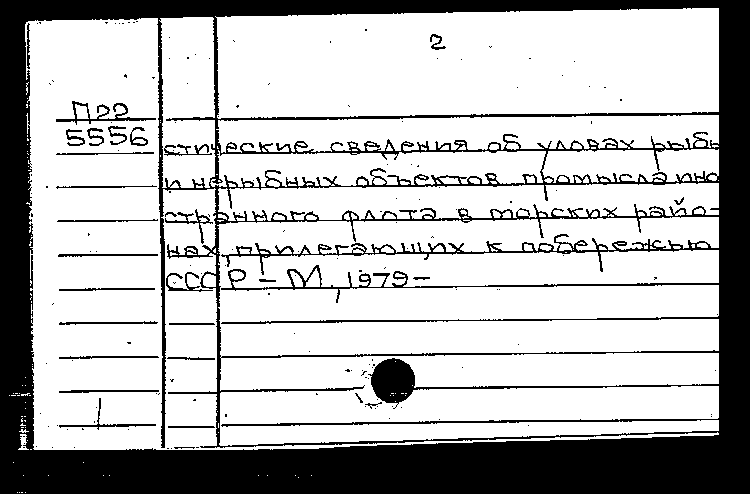 2
П22
5556
стические сведения об уловах рыбы
и нерыбных объектов промысла ино
странного флота в морских райо-
нах, прилегающих к побережью
СССР - М, 1979-